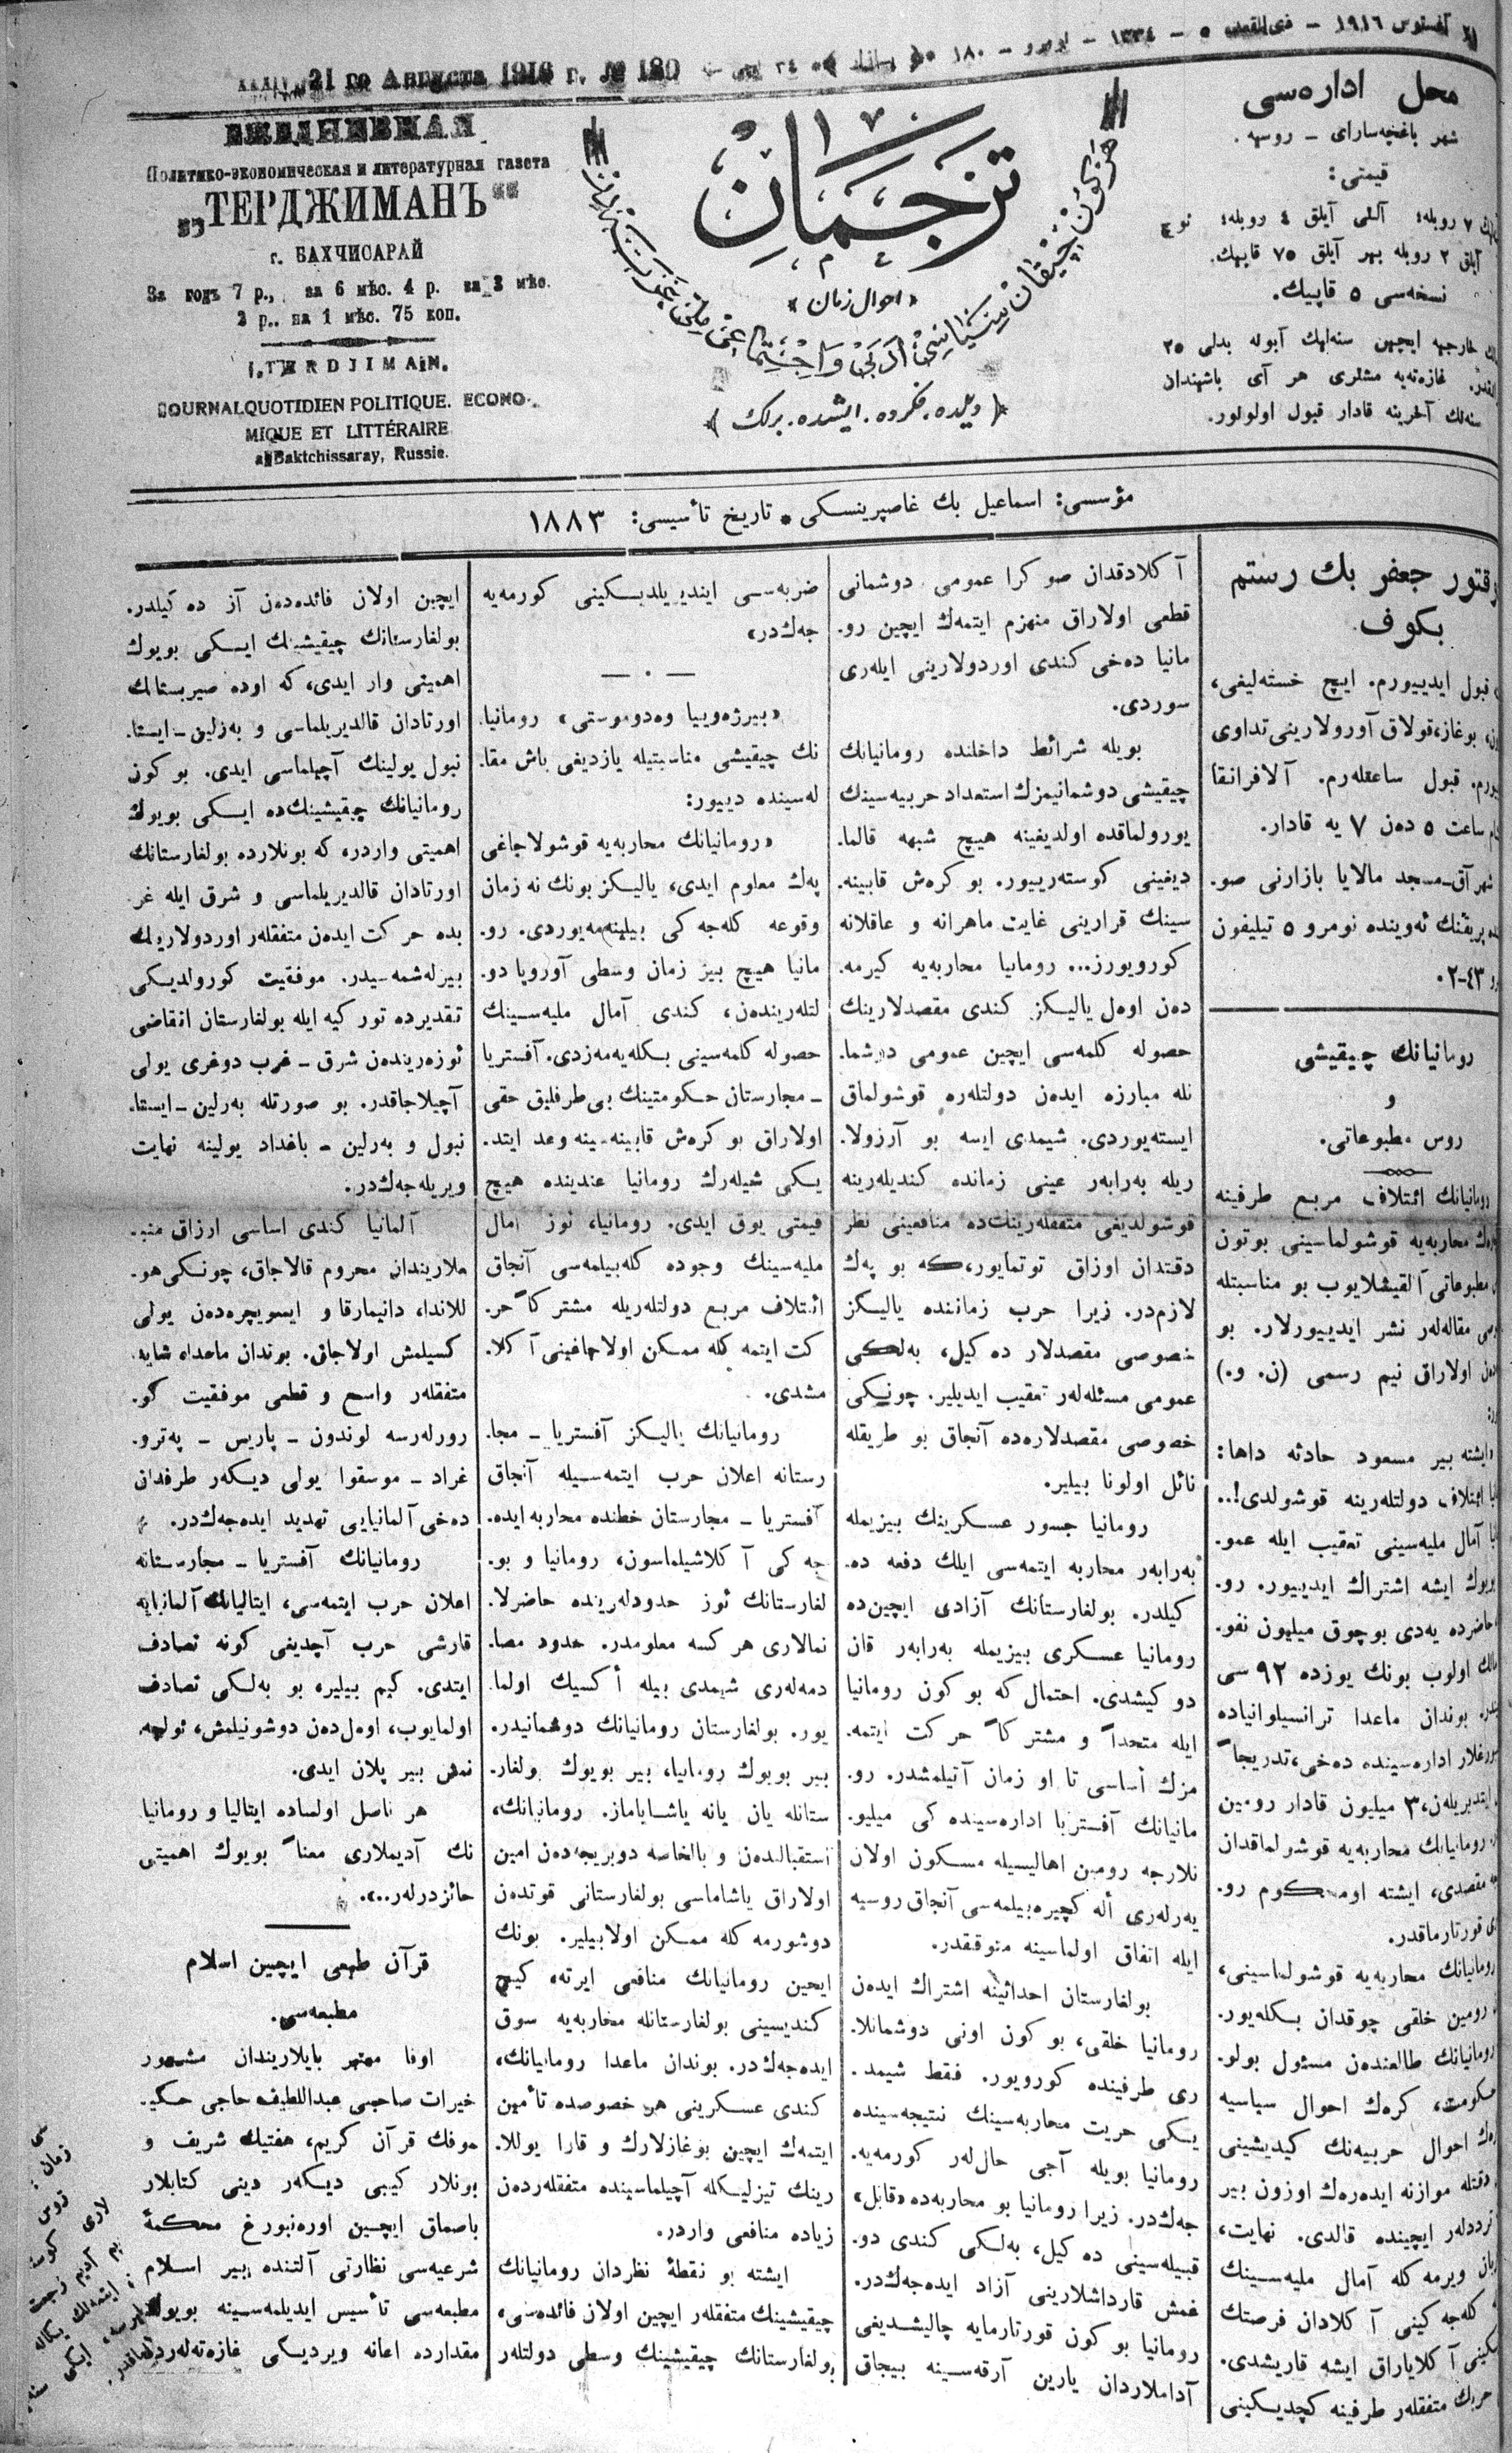 ٢١ آغستوس ١٩١٦ – ذی القعده ٥ – ١٣٣٤ – نومرو – ١٨٠
21 го Августа 1916 г. № 180
ЕЖЕДНЕВНАЯ
Политико-экономическая и литературная газета
„ТЕРДЖИМАНЪ“
г. БАХЧИСАРАЙ
За годъ 7 р., за 6 мѣс. 4 р. за 3 мѣс.
2 р.. на 1 мѣс. 75 коп.
TERDJIMAN
JOURNAL QUOTIDIEN POLITIQUE. ECONO-
MIQUE ET LITTÉRAIRE
a Baktchissaray, Russie.
ترجمان
«احوال زمان»
هر كون چيقان سياسى ادبى و اجتماعى ملى
﴿ديلده. فكرده. ايشده. برلك﴾
محل اداره‌سی
شهر باغچه‌سارای – روسيه.
قيمتی:
٧ روبله؛ آلتی آيلق ٤ روبله؛
آيلق ٢ روبله بهر آيلق ٧٥ قاپيك.
نسخه‌سی ٥ قاپيك.
خارجيه ايچين سنه‌لك آبونه بدلی ٢٥
غازه‌ته‌يه مشتری هر آی باشندان
سنه‌لك آخرينه قادار قبول اولونور.
مؤسسی: اسماعيل بك غاصپرينسكی * تاريخ تأسيسی: ١٨٨٣
دوقتور جعفر بك رستم
بكوف.
قبول ايدييورم. ايچ خسته‌ليغی،
بوغاز، قولاق آورولارينی تداوی
قبول ساعتله‌رم. آلافرانقا
ساعت ٥ دەن ٧ يه قادار.
شهر آق-مسجد مالايا بازارنی صو.
ئه‌وينده نومرو ٥ تيليفون
٤٣-٢٠
رومانيانك چيقيشی
و
روس مطبوعاتی.
رومانيانك ائتلاف مربع طرفينه
محاربه‌يه قوشولماسينی بوتون
مطبوعاتی آلقيشلايوب بو مناسبتله
مقاله‌لەر نشر ايدييورلار. بو
اولاراق نيم رسمی (ن. و.)
ايشته بير مسعود حادثه داها:
ائتلاف دولتلەرينه قوشولدی!..
آمال مليه‌سينی تعقيب ايله عمو.
بويوك ايشه اشتراك ايدييور. رو.
حاضرده يه‌دی بوچوق ميليون نفو.
مالك اولوب بونك يوزده ٩٢ سی
بوندان ماعدا ترانسيلوانياده
اداره‌سينده دەخی، تدريجاً
٣ ميليون قادار رومين
رومانيانك محاربه‌يه قوشولماقدان
مقصدی، ايشته او محكوم رو.
قورتارماقدر.
رومانيانك محاربه‌يه قوشولماسينی،
رومين خلقی چوقدان بكله‌يور.
رومانيانك طالعندەن مسئول بولو.
حكومت، كرەك احوال سياسيه
احوال حربيه‌نك كيديشينی
دقتله موازنه ايدەرەك اوزون بير
ترددلەر ايچينده قالدی. نهايت،
ويرمه كله آمال مليه‌سينك
كله‌جه كينی آ كلادان فرصتك
آ كلاياراق ايشه قاريشدی.
حربك متفقلەر طرفينه كچديكينی
آ كلادقدان صو كرا عمومی دوشمانی
قطعی اولاراق منهزم ايتمەك ايچين رو.
مانيا دەخی كندی اوردولارينی ايله‌ری
سوردی.
بويله شرائط داخلنده رومانيانك
چيقيشی دوشمانيمزك استعداد حربيه‌سينك
يورولماقده اولديغينه هيچ شبهه قالما.
ديغينی كوسته‌رييور. بو كرەش قابينه.
سينك قرارينی غايت ماهرانه و عاقلانه
كورويورز... رومانيا محاربه‌يه كيرمه.
دەن اوەل ياليكز كندی مقصدلارينك
حصوله كلمه‌سی ايچين عمومی دوشما.
نله مبارزه ايدەن دولتله‌ره قوشولماق
ايسته‌يوردی. شيمدی ايسه بو آرزولا.
ريله بەرابەر عينی زمانده كنديله‌رينه
قوشولديغی متفقله‌رينك‌ده منافعينی نظر
دقتدان اوزاق توتمايور، كه بو پەك
لازم‌در. زيرا حرب زماننده ياليكز
خصوصی مقصدلار دە كيل، بەلكی
عمومی مسئله‌لەر تعقيب ايديلير. چونكی
خصوصی مقصدلاره‌ده آنجاق بو طريقله
نائل اولونا بيلير.
رومانيا جسور عسكرينك بيزيمله
بەرابەر محاربه ايتمه‌سی ايلك دفعه دە.
كيلدر. بولغارستانك آزادی ايچين‌ده
رومانيا عسكری بيزيمله بەرابەر قان
دو كيشدی. احتمال كه بو كون رومانيا
ايله متحداً و مشتر كاً حركت ايتمه.
مزك أساسی تا او زمان آتيلمشدر. رو.
مانيانك آفستريا اداره‌سينده كی ميليو.
نلارجه رومين اهاليسيله مسكون اولان
يەرله‌ری أله كچيره‌بيلمه‌سی آنجاق روسيه
ايله اتفاق اولماسينه متوقفدر.
بولغارستان احداثينه اشتراك ايدەن
رومانيا خلقی، بو كون اونی دوشمانلا.
ری طرفينده كورويور. فقط شيمد.
يكی حريت محاربه‌سينك نتيجه‌سينده
رومانيا بويله آجی حال‌لەر كورمه‌يه.
جەك‌در. زيرا رومانيا بو محاربه‌ده «قابل»
قبيله‌سينی دە كيل، بەلكی كندی دو.
غمش قارداشلارينی آزاد ايده‌جەك‌در.
رومانيا بو كون قورتارمايه چاليشديغی
آداملاردان يارين آرقه‌سينه بيچاق
ضربه‌سی اينديريلديكينی كورمه‌يه
جەك‌در»
— ٠ —
«بيرژەوييا وەدوموستی» رومانيا.
نك چيقيشی مناسبتيله يازديغی باش مقا.
له‌سينده دييور:
«رومانيانك محاربه‌يه قوشولاجاغی
پەك معلوم ايدی، ياليكز بونك نه زمان
وقوعه كله‌جه كی بيلينه‌مەيوردی. رو.
مانيا هيچ بيز زمان وسطی آوروپا دو.
لتله‌ريندەن، كندی آمال مليه‌سينك
حصوله كلمه‌سينی بكله‌يه‌مەزدی. آفستريا
– مجارستان حكومتينك بی‌طرفليق حقی
اولاراق بو كرەش قابينه‌سينه وعد ايتد.
يكی شيله‌رك رومانيا عندينده هيچ
قيمتی يوق ايدی. رومانيا، ئوز آمال
مليه‌سينك وجوده كله‌بيلمه‌سی آنجاق
ائتلاف مربع دولتله‌ريله مشتر كاً حر.
كت ايتمه كله ممكن اولاجاغينی آ كلا.
مشدی.
رومانيانك ياليكز آفستريا – مجا.
رستانه اعلان حرب ايتمه‌سيله آنجاق
آفستريا – مجارستان خطنده محاربه ايده.
جه كی آ كلاشيلماسون، رومانيا و بو.
لغارستانك ئوز حدودله‌رينده حاضرلا.
نمالاری هر كسه معلومدر. حدود مصا.
دمه‌له‌ری شيمدی بيله أ كسيك اولما.
يور. بولغارستان رومانيانك دوشمانيدر.
بير بويوك رومانيا، بير بويوك بولغار.
ستانله يان يانه ياشاياماز. رومانيانك،
استقبالندەن و بالخاصه دوبريجه‌دەن امين
اولاراق ياشاماسی بولغارستانی قوتدەن
دوشورمه كله ممكن اولابيلير. بونك
ايچين رومانيانك منافعی ايرته، كيچ
كنديسينی بولغارستانله محاربه‌يه سوق
ايده‌جەك‌در. بوندان ماعدا رومانيانك،
كندی عسكرينی هر خصوصده تأمين
ايتمەك ايچين بوغازلارك و قارا يوللا.
رينك تيزليكله آچيلماسينده متفقله‌ردەن
زياده منافعی واردر.
ايشته بو نقطۀ نظردان رومانيانك
چيقيشينك متفقلەر ايچين اولان فائده‌سی،
بولغارستانك چيقيشينك وسطی دولتلەر
ايچين اولان فائده‌دەن آز دە كيلدر.
بولغارستانك چيقيشينك ايكی بويوك
اهميتی وار ايدی، كه اوده صيربستانك
اورتادان قالديريلماسی و بەرلين – ايستا.
نبول يولينك آچيلماسی ايدی. بو كون
رومانيانك چيقيشينك‌ده ايكی بويوك
اهميتی واردر، كه بونلارده بولغارستانك
اورتادان قالديريلماسی و شرق ايله غر.
بده حركت ايدەن متفقلەر اوردولارينك
بيرله‌شمه‌سيدر. موفقيت كورولديكی
تقديرده توركيه ايله بولغارستان انقاضی
ئوزه‌ريندەن شرق – غرب دوغری يولی
آچيلاجاقدر. بو صورتله بەرلين – ايستا.
نبول و بەرلين – باغداد يولينه نهايت
ويريله‌جەك‌در.
آلمانيا كندی اساسی ارزاق منبـ.
علاريندان محروم قالاجاق، چونكی هو.
للاندا، دانيمارقا و ايسويچرەدەن يولی
كسيلمش اولاجاق. بوندان ماعدا، شايد
متفقلەر واسع و قطعی موفقيت كو.
رورلەرسه لوندون – پاريس – پەترو.
غراد – موسقوا يولی ديكەر طرفدان
دەخی آلمانيايی تهديد ايده‌جەك‌در.
رومانيانك آفستريا – مجارستانه
اعلان حرب ايتمه‌سی، ايتاليانك آلمانيايه
قارشی حرب آچديغی كونه تصادف
ايتدی. كيم بيلير، بو بەلكی تصادف
اولمايوب، اوەل‌دەن دوشونيلمش، ئولچه.
نمش بير پلان ايدی.
هر ناصل اولساده ايتاليا و رومانيا
نك آديملاری معناً بويوك اهميتی
حائزدرلەر..».
قرآن طبعی ايچين اسلام
مطبعه‌سی.
اوفا معتبر بايلاريندان مشهور
خيرات صاحبی عبداللطيف حاجی حكيـ.
موفك قرآن كريم، هفتيك شريف و
بونلار كيبی ديكەر دينی كتابلار
باصماق ايچين اوره‌نبورغ محكمۀ
شرعيه‌سی نظارتی آلتنده بير اسلام
مطبعه‌سی تأسيس ايديلمه‌سينه بويوك
مقدارده اعانه ويرديكی غازه‌ته‌لەرده